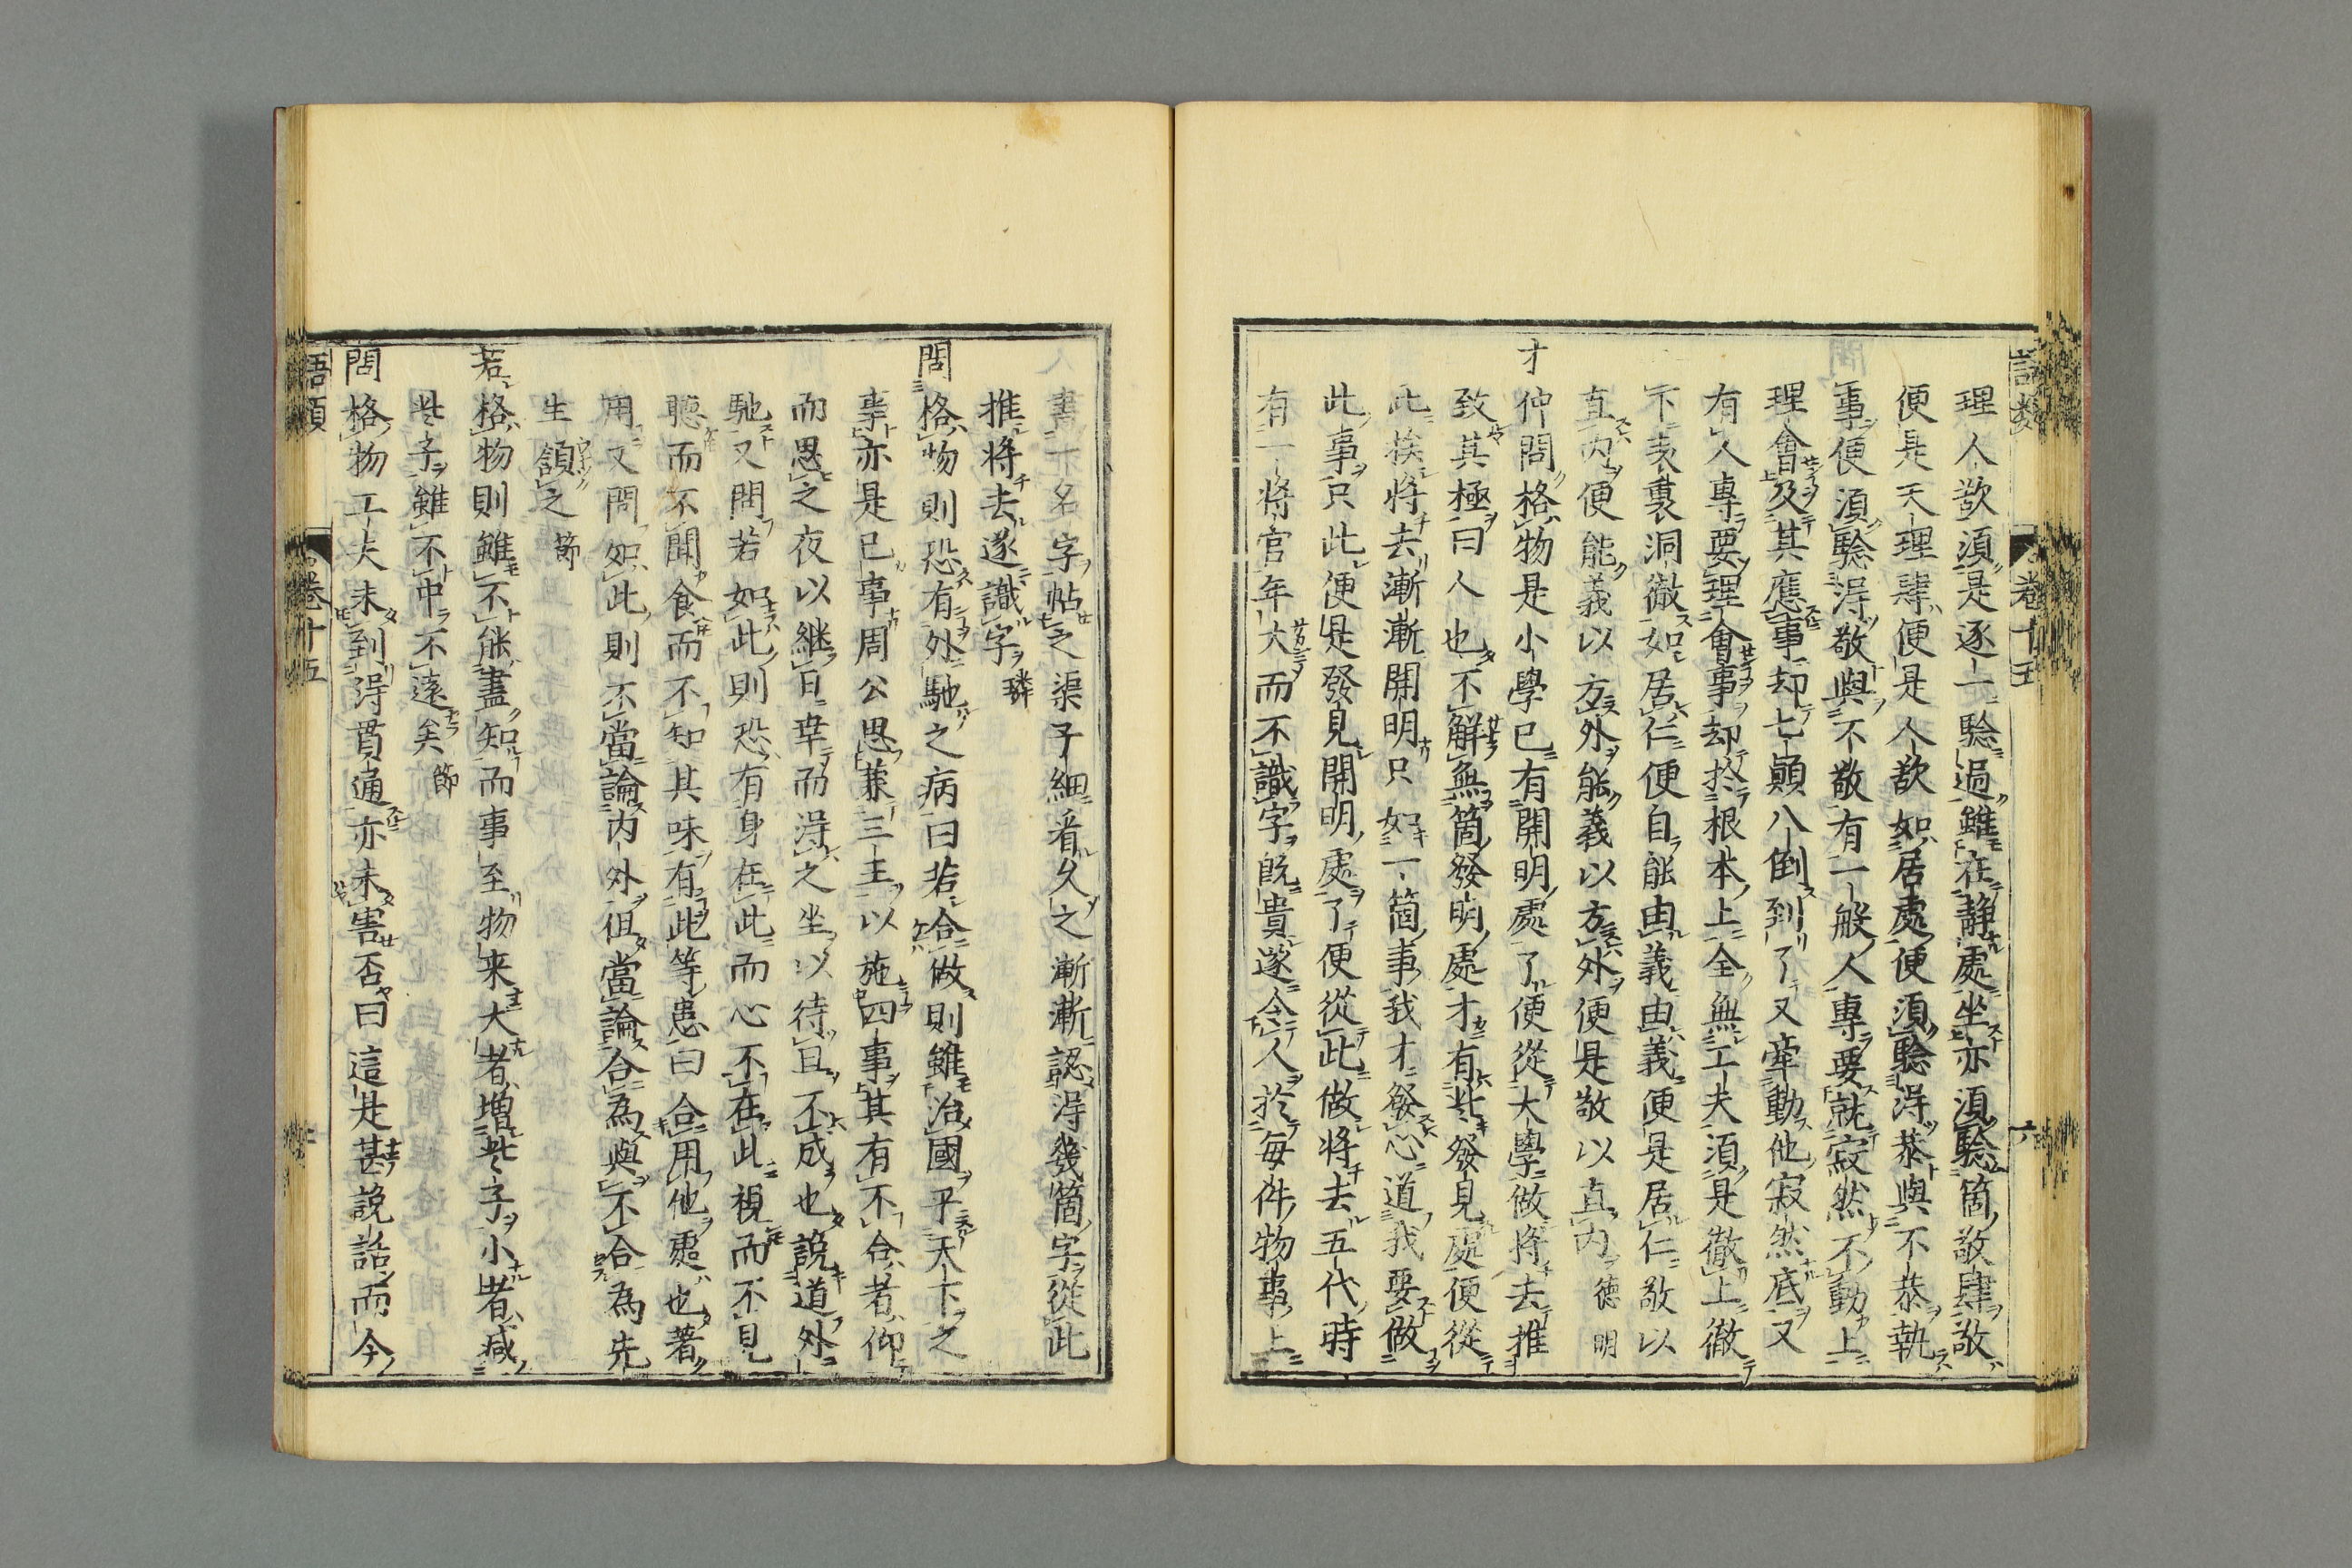 語類 卷十五 六
理人欲須是逐一驗過雖在靜處坐亦須驗箇敬肆敬
便是天理肆便是人欲如居處便須驗得恭與不恭執
事便須驗得敬與不敬有一般人專要就寂然不動上
理會及其應事却七顛八倒到了又牽動他寂然底又
有人專要理會事却於根本上全無工夫須是徹上徹
下表裏洞徹如居仁便自能由義由義便是居仁敬以
直内便能義以方外能義以方外便是敬以直内 德明
才仲問格物是小學已有開明處了便從大學做將去推
致其極曰人也不解無箇發明處才有些發見處便從
此挨將去漸漸開明只如一箇事我才發心道我要做
此事只此便是發見開明處了便從此做將去五代時
有一將官年大而不識字既貴遂令人於每件物事上
書一名字帖之渠子細看久之漸漸認得幾箇字從此
推將去遂識字 璘
問格物則恐有外馳之病曰若合做則雖治國平天下之
事亦是已事周公思兼三王以施四事其有不合者仰
而思之夜以継日幸而得之坐以待旦不成也說道外
馳又問若如此則恐有身在此而心不在此視而不見
聽而不聞食而不知其味有此等患曰合用他處也著
用又問如此則不當論内外但當論合為與不合為先
生頷之 節
若格物則雖不能盡知而事至物来大者増些子小者減
些子雖不中不遠矣 節
問格物工夫未到得貫通亦未害否曰這是甚說話而今
語類 卷十五